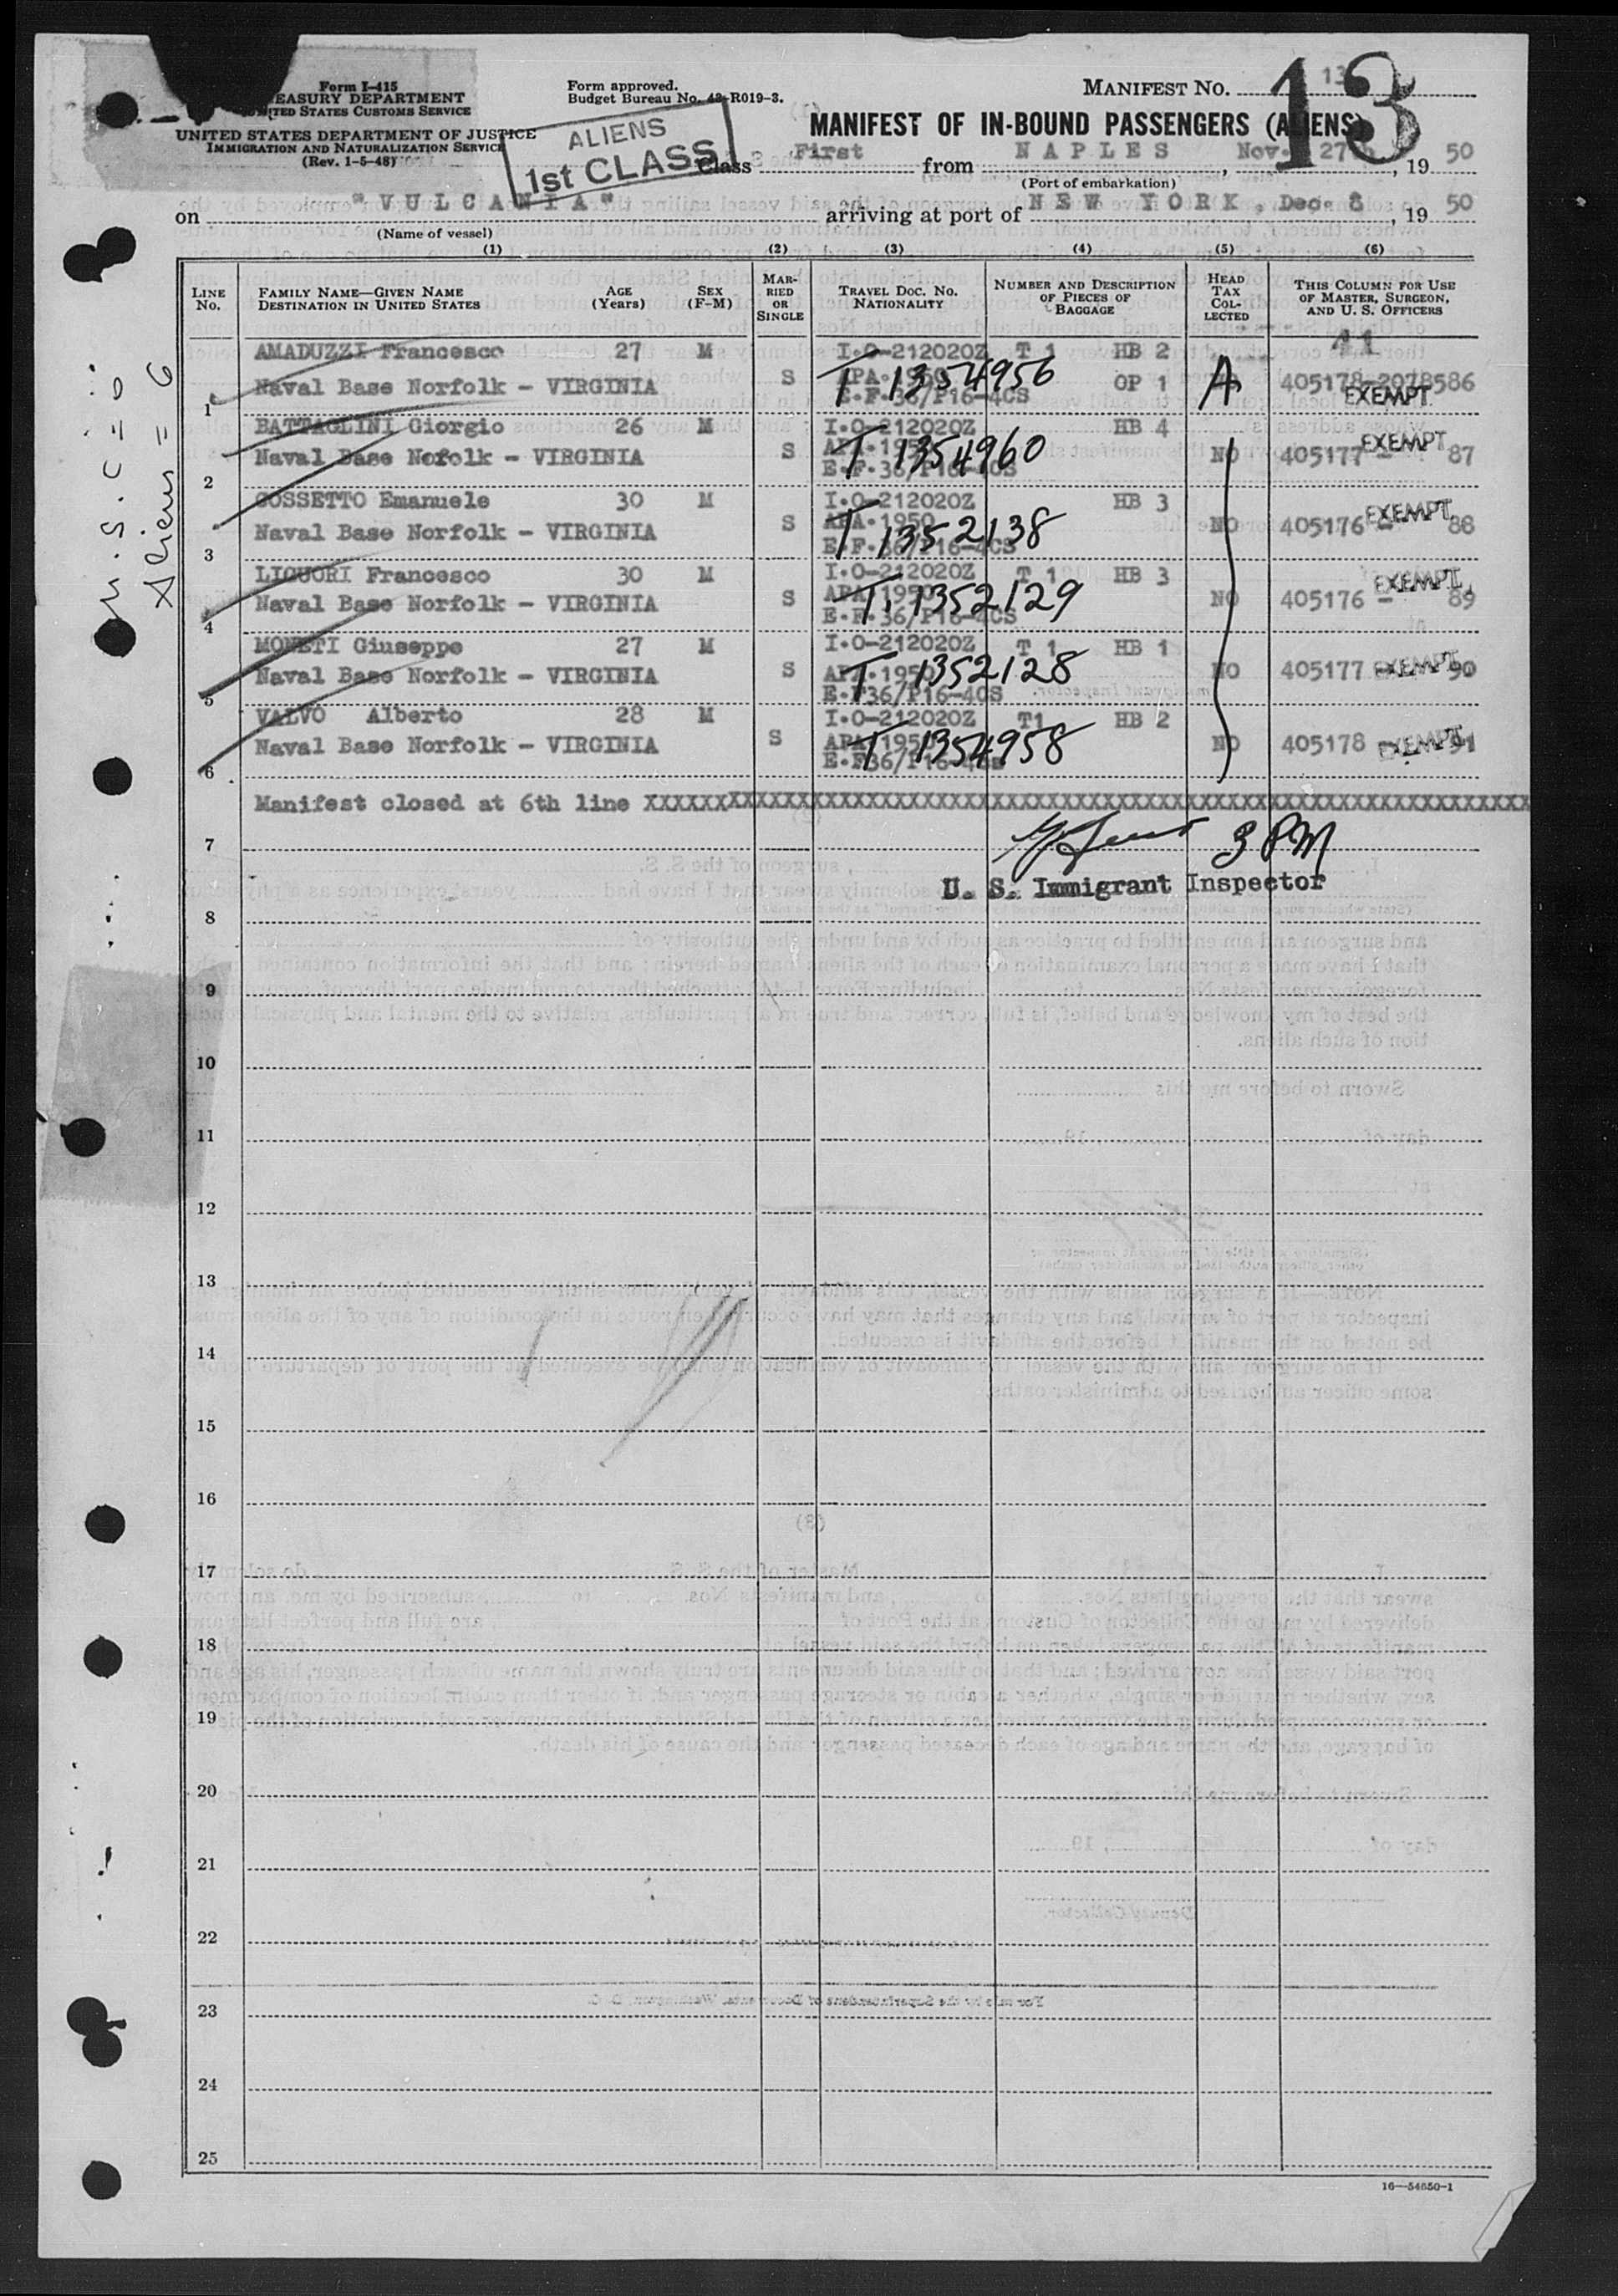 Form I-415
TREASURY DEPARTMENT
UNITED STATES CUSTOMS SERVICE
UNITED STATES DEPARTMENT OF JUSTICE
IMMIGRATION AND NATURALIZATION SERVICE
(Rev. 1-5-48)
Form approved.
Budget Bureau No. 43-R019-3.
ALIENS
1st CLASS
MANIFEST NO. 13
13
MANIFEST OF IN-BOUND PASSENGERS (ALIENS)
Class First from NAPLES Nov. 27th, 19 50
(Port of embarkation)
on "VULCANIA" arriving at port of NEW YORK, Dec. 8, 19 50
(Name of vessel)
(1) (2) (3) (4) (5) (6)
LINE No. FAMILY NAME—GIVEN NAME DESTINATION IN UNITED STATES AGE (Years) SEX (F-M) MARRIED OR SINGLE TRAVEL DOC. NO. NATIONALITY NUMBER AND DESCRIPTION OF PIECES OF BAGGAGE HEAD TAX COLLECTED THIS COLUMN FOR USE OF MASTER, SURGEON, AND U. S. OFFICERS
41
AMADUZZI Francesco 27 M I.O-212020Z T 1 HB 2
1 Naval Base Norfolk - VIRGINIA S APA.1950 T 1354956 OP 1 A 405178-2078586
E.F.36/P16-4CS EXEMPT
BATTAGLINI Giorgio 26 M I.O-212020Z HB 4 EXEMPT
2 Naval Base Nofolk - VIRGINIA S APA.1950 T 1354960 NO 405177 - 87
E.F.36/P16-4CS
GOSSETTO Emanuele 30 M I.O-212020Z HB 3 EXEMPT
3 Naval Base Norfolk - VIRGINIA S APA.1950 T 1352138 NO 405176 - 88
E.F.36/P16-4CS
LIGUORI Francesco 30 M I.O-212020Z T 1 HB 3 EXEMPT
4 Naval Base Norfolk - VIRGINIA S APA.1950 T. 1352129 NO 405176 - 89
E.F.36/P16-4CS
MONETI Giuseppe 27 M I.O-212020Z T 1 HB 1
5 Naval Base Norfolk - VIRGINIA S APA.1950 T 1352128 NO 405177 EXEMPT 90
E.F36/P16-4CS
VALVO Alberto 28 M I.O-212020Z T1 HB 2
6 Naval Base Norfolk - VIRGINIA S APA.1950 T 1354958 NO 405178 EXEMPT 91
E.F36/P16-4CS
Manifest closed at 6th line XXXXXXXXXXXXXXXXXXXXXXXXXXXXXXXXXXXXXXXXXXXXXXXXXXXXXXXXXXXXXXX
7
3 PM
U. S. Immigrant Inspector
8
9
10
11
12
13
14
15
16
17
18
19
20
21
22
23
24
25
16—54650-1
U.S.C = 0
Aliens = 6